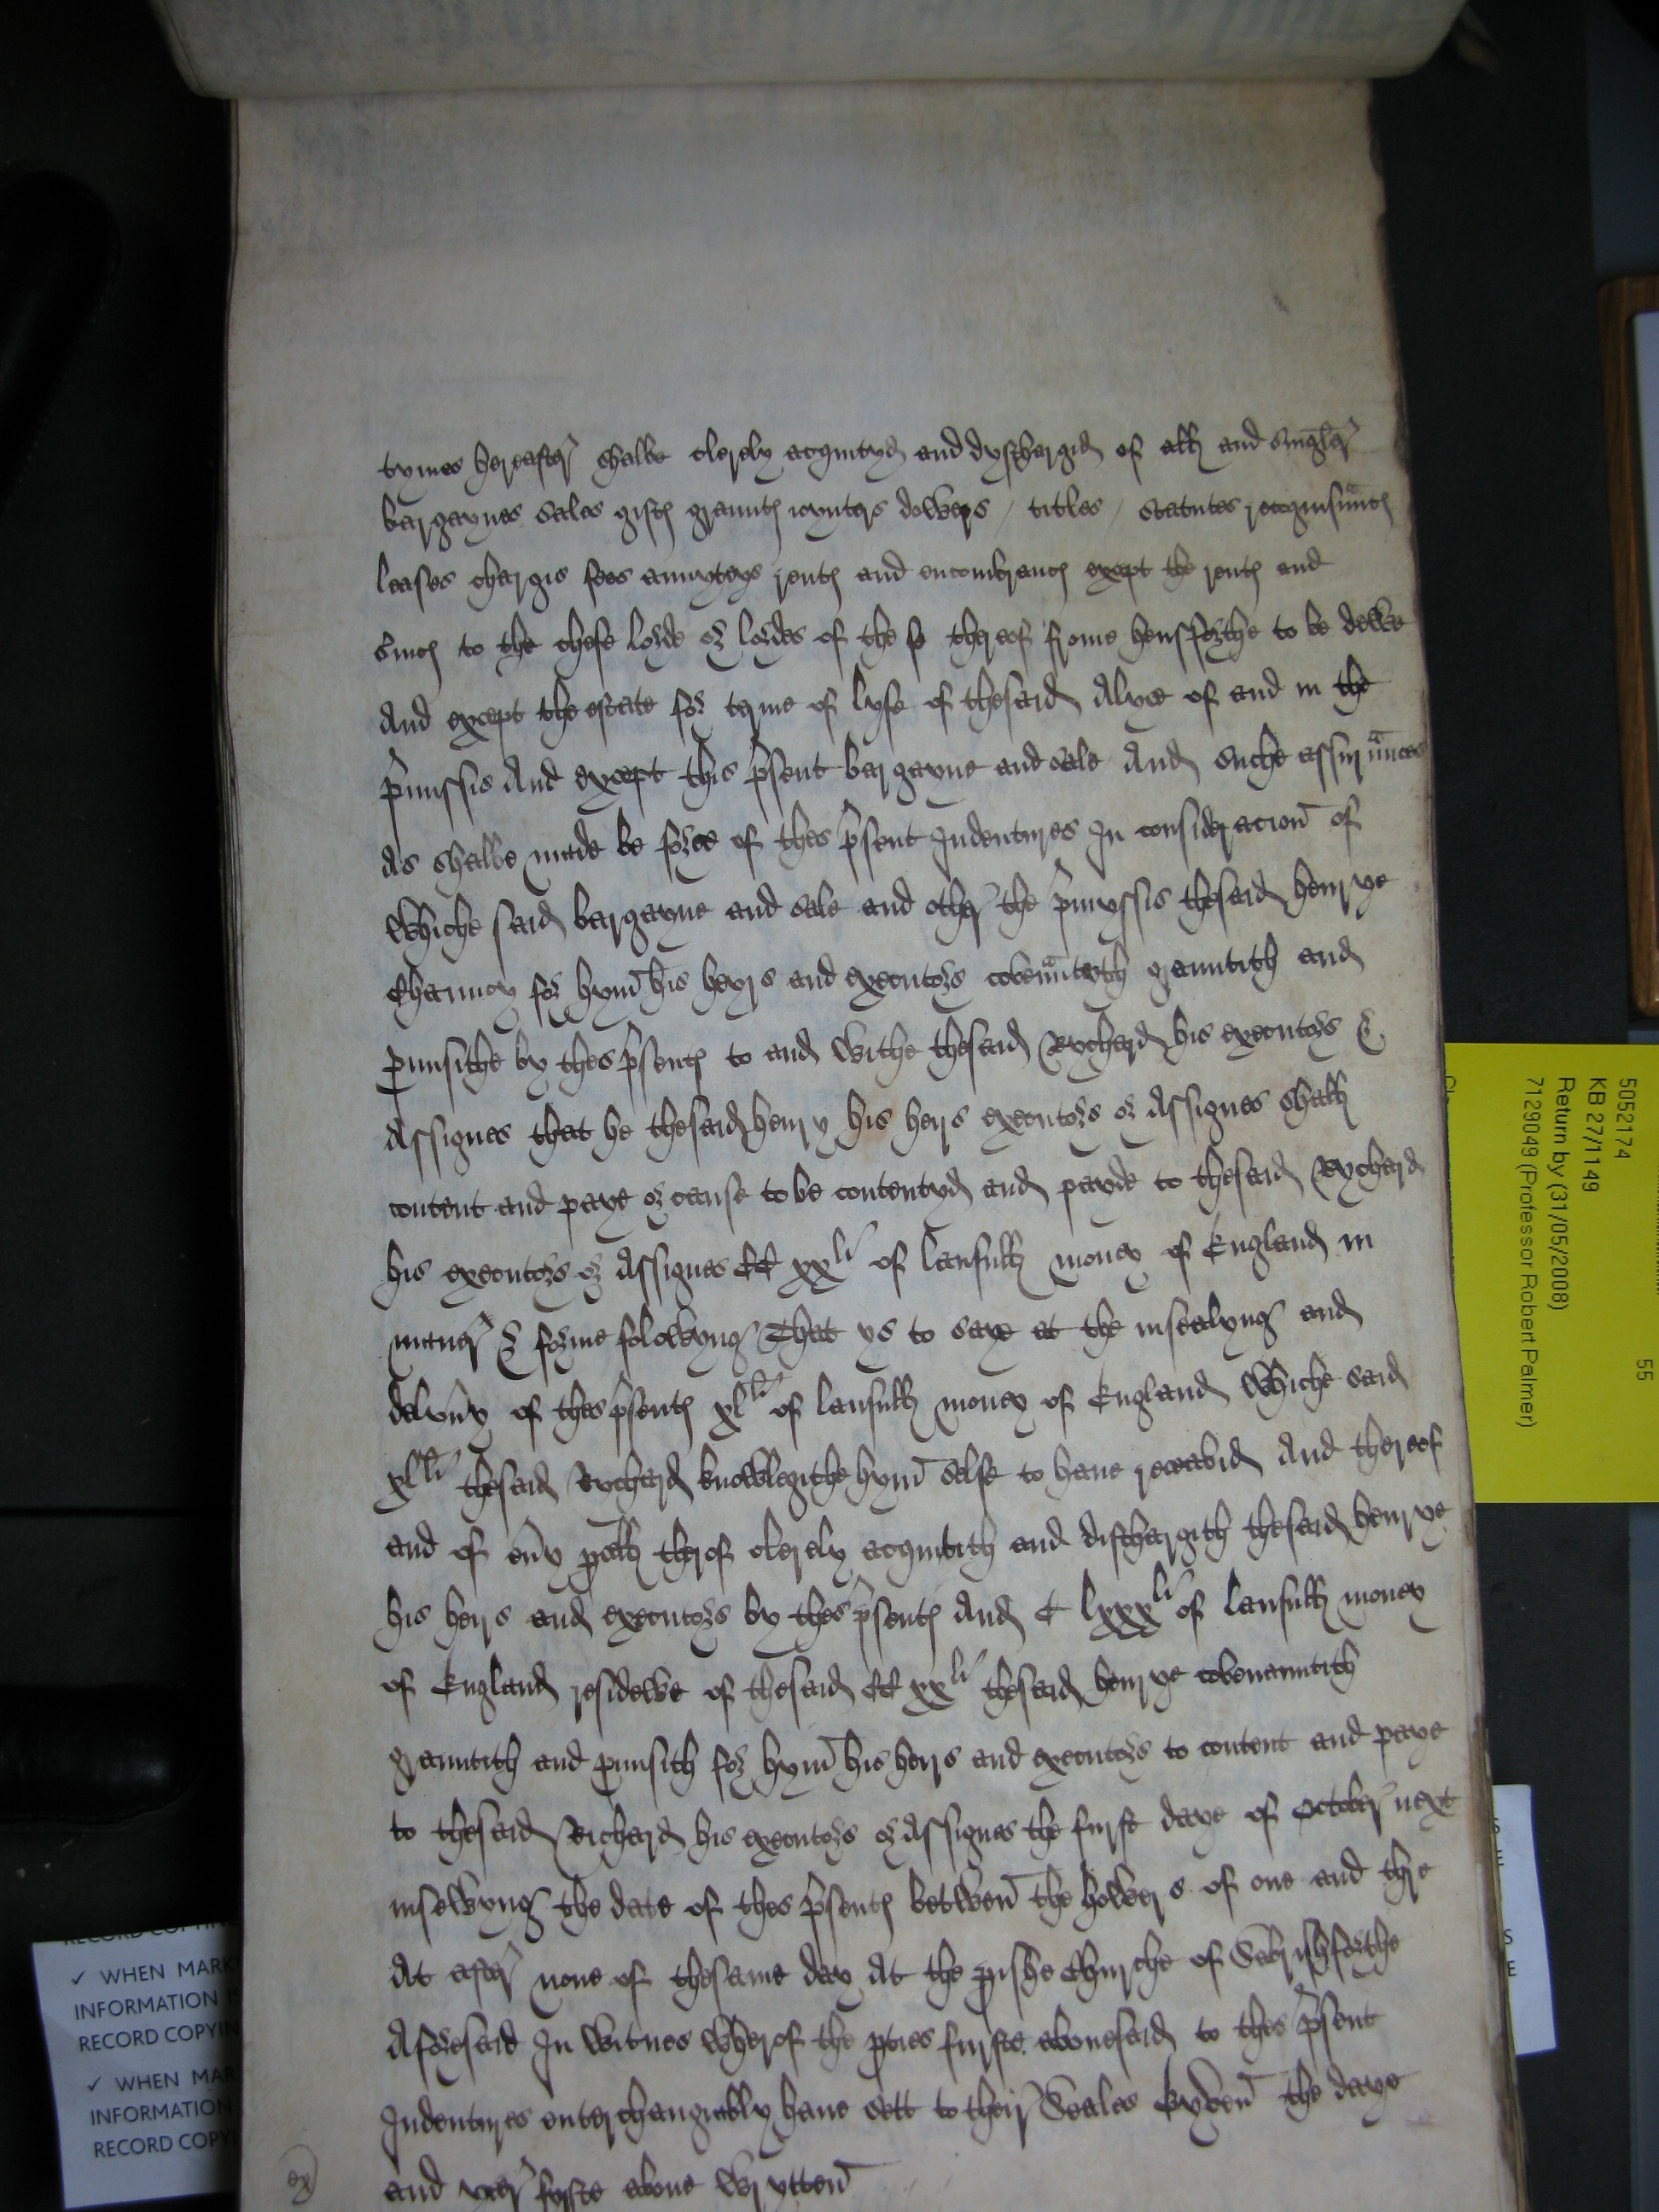 tymes hereafter shalbe clerely acquityd and dyschargid of all and singler
bargaynes Sales gift grauntes ioynters dowers / titles / Statutes recognisaunces
leases chargis fees annuyteys rentes and encombraunces except the rentes and
to the chefe lorde or lordes of the therof frome hensforthe to be dewe
And except the estate for terme of lyfe of thesaid Alyce of and in the
p'missis And except this p'sent bargayne and sale And suche assuraunces
As shalbe made be force of thes p'sent Indentures In consideracion of
Whiche said bargayne and sale and other the p'myssis thesaid henrye
for hym his heyrs and executors covenauntith grauntith and
promisithe by thes p'sentes to and withe thesaid Rychard his executors &
Assignes that he thesaid henry his heirs executors or Assignes shall
content and paye or cause to be contentyd and payde to thesaid Rychard
his executors or Assignes CC xx li of laufull money of England in
maner & forme folowyng That ys to saye at the insealyng and
delyv'y of thes p'sentes xl li of laufull money of England Whiche said
xl li thesaid Rychard knowlegithe hym selfe to haue receavid And thereof
and of eu'y p'cell therof clerely acquitith and dischargith thesaid henrye
his heirs and executors by thes p'sentes And C lxxx li of laufull money
of England residewe of thesaid CC xx li thesaid henrye covenauntith
grauntith and promisith for hym his heirs and executors to content and paye
to thesaid Richard his executors or Assignes the furst daye of October next
insewyng the date of thes p'sentes betwen the howers of one and thre
At after none of thesame day At the p'ishe Churche of
Aforesaid In witnes wherof the p'ties furste abouesaid to thes p'sent
Indentures enterchangiably haue sett to their Seales Gyven the daye
and yer furste aboue wrytten
ex
5052174
KB 27/1149
Return by (31/05/2008)
7129049 (Professor Robert Palmer)
55
✓ WHEN MARK
INFORMATION
RECORD COPYIN
✓ WHEN MAR
INFORMATION
RECORD COPY